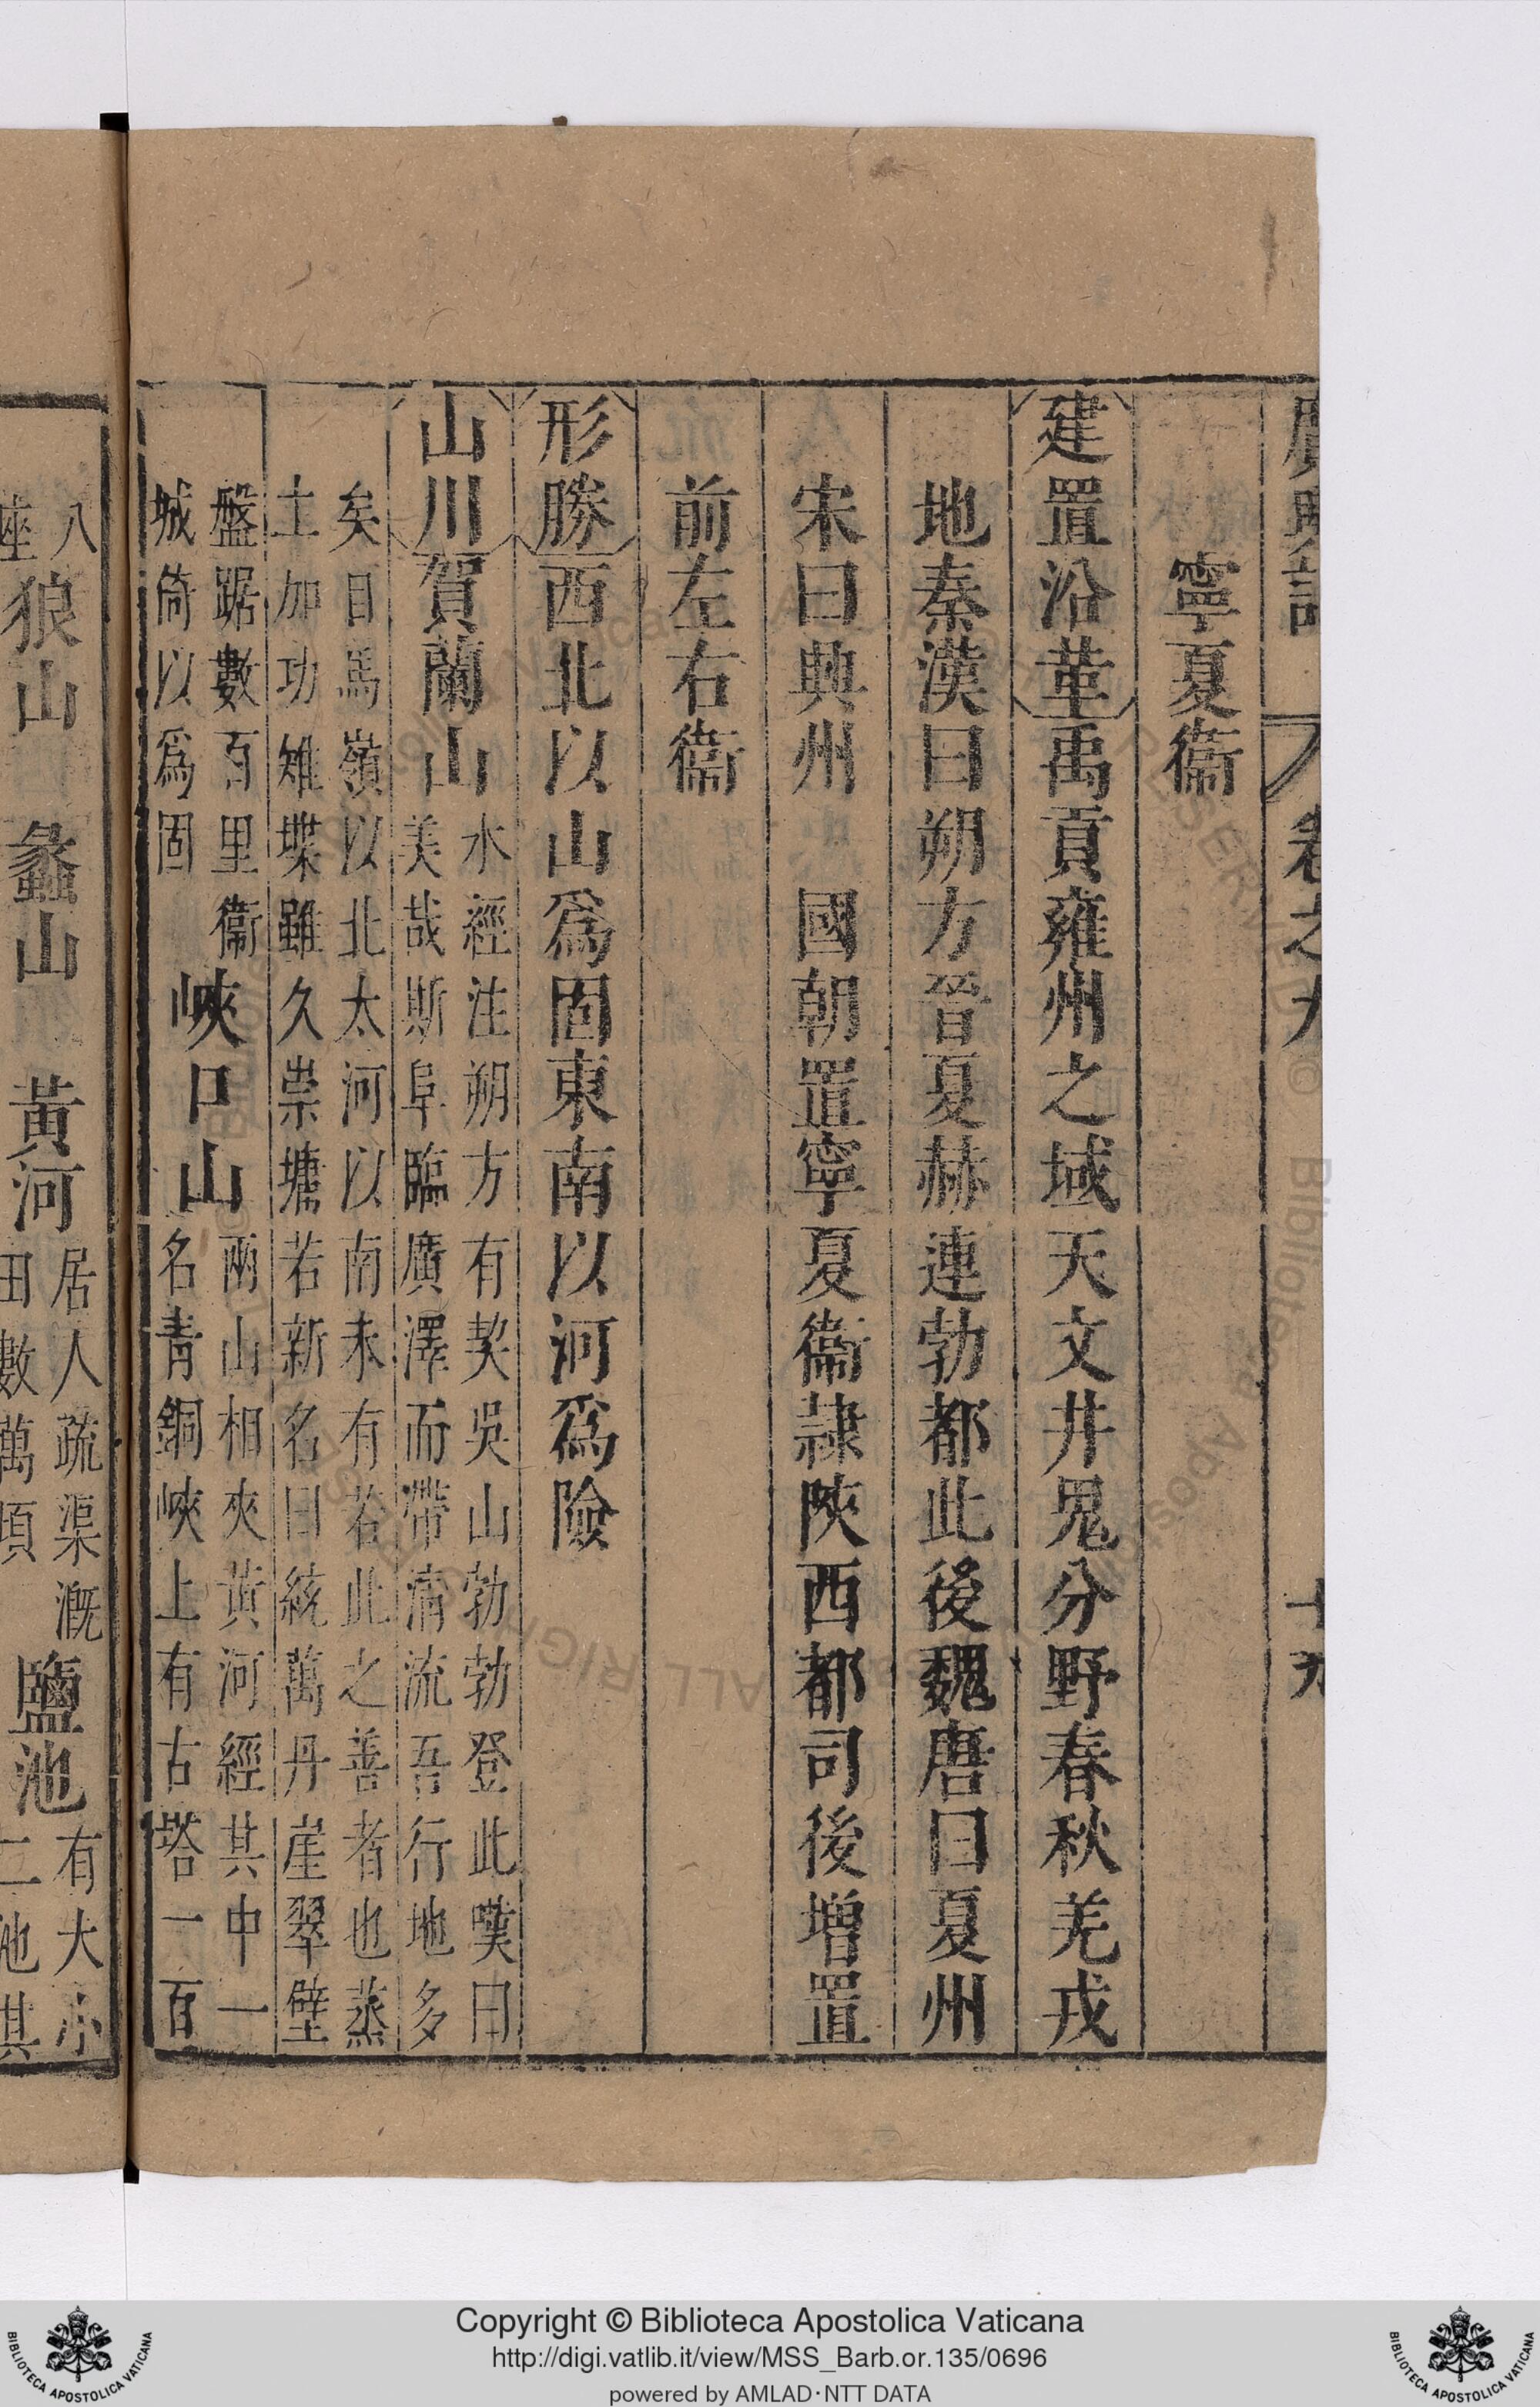 廣輿記 卷之九 十九
寧夏衞
建置沿革禹貢雍州之域天文井鬼分野春秋羌戎
地秦漢曰朔方晉夏赫連勃都此後魏唐曰夏州
宋曰興州 國朝置寧夏衞隷陝西都司後增置
前左右衞
形勝西北以山爲固東南以河爲險
山川賀蘭山
水經注朔方有契吳山勃勃登此嘆曰
美哉斯阜臨廣澤而帶淸流吾行地多
矣自馬嶺以北太河以南未有若此之善者也蒸
土加功雉堞雖久崇墉若新名曰統萬丹崖翠壁
盤踞數百里衞
城倚以爲固
峽口山
兩山相夾黃河經其中一
名青銅峽上有古塔一百
八
座
狼山 蠡山 黃河
居人疏渠漑
田數萬頃
鹽池
有大小
二池其
Copyright © Biblioteca Apostolica Vaticana
http://digi.vatlib.it/view/MSS_Barb.or.135/0696
powered by AMLAD·NTT DATA
BIBLIOTECA APOSTOLICA VATICANA
BIBLIOTECA APOSTOLICA VATICANA